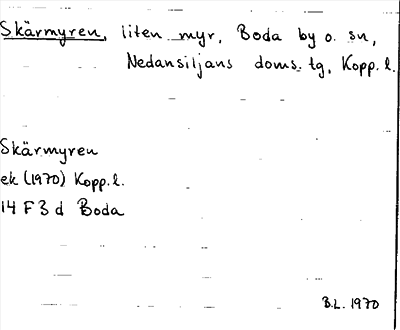 Skärmyren, liten myr, Boda by o. sn,
Nedansiljans doms. tg, Kopp. l.
Skärmyren
ek (1970) Kopp. l.
14 F 3 d Boda
B.L. 1970